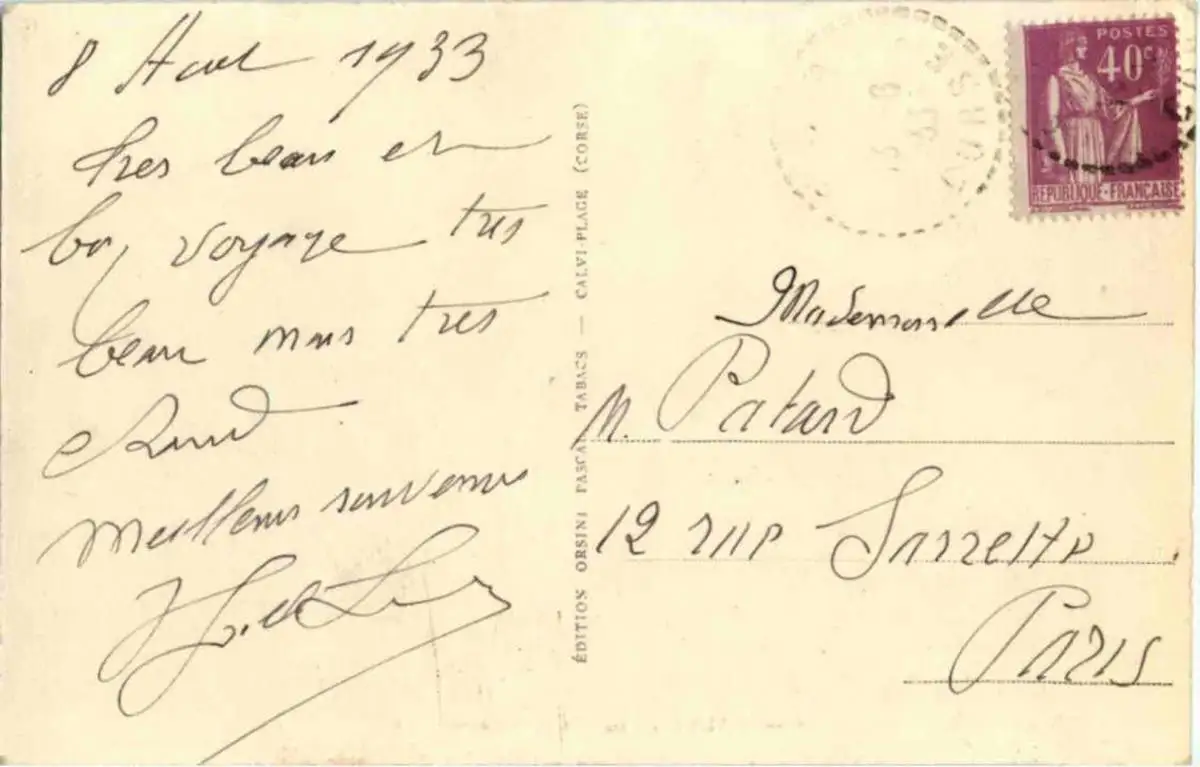 8 Aout 1933
tres beau et
bon voyage tres
beau mais tres
chaud
Meilleurs souvenirs
ÉDITIOS ORSINI PASCAL TABACS — CALVI-PLAGE (CORSE)
POSTES
40c
RÉPUBLIQUE-FRANÇAISE
Mademoiselle
M. Patard
12 rue Sarrette
PARIS